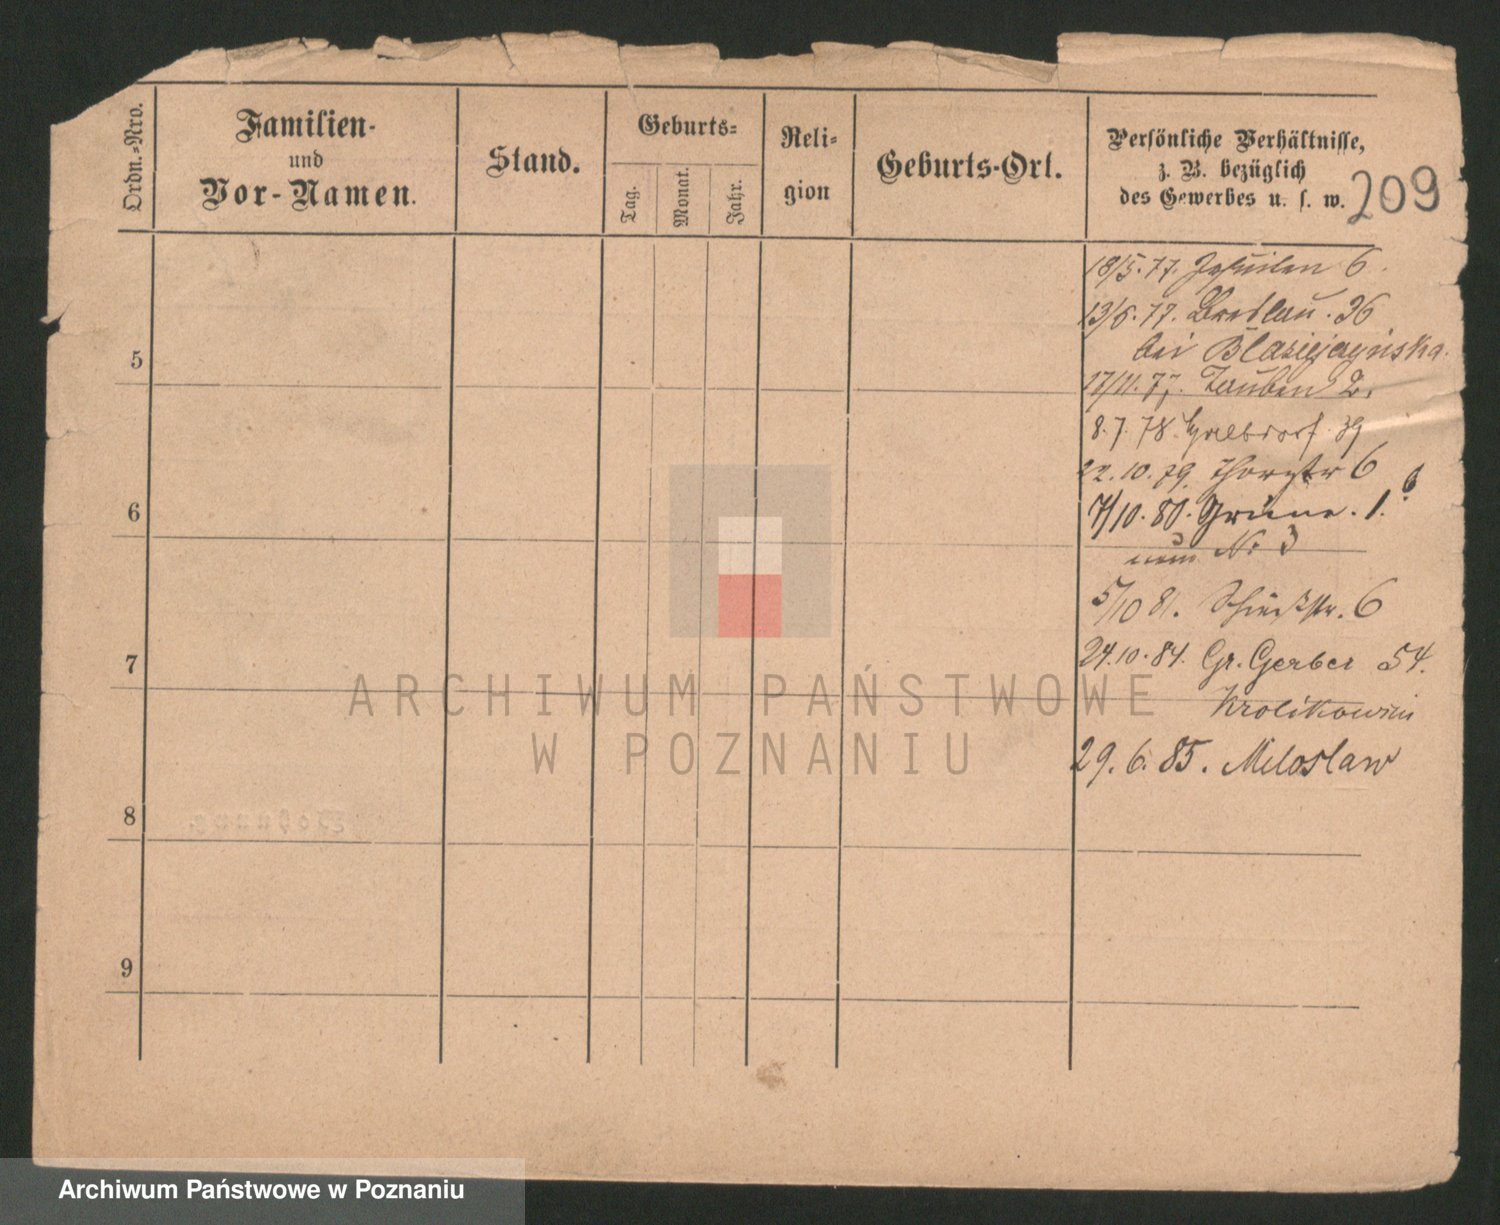 Ordn.-Nro.
Familien-
und
Vor-Namen.
Stand.
Geburts-
Tag.
Monat.
Jahr.
Reli-
gion
Geburts-Ort.
Persönliche Verhältnisse,
z. B. bezüglich
des Gewerbes u. s. w.
209
18/5. 77. Jesuiten 6.
13/6. 77. Breslau. 36
bei
17/11. 77. Tauben 2.
5
8. 7. 78. 39
22. 10. 79. 6
6
7/10. 80. Grüne. 1.
nun No 3
5/10 81. Schießstr. 6
24. 10. 84. Gr. Gerber 54.
7
29. 6. 85. Miloslaw
8
9
ARCHIWUM PAŃSTWOWE
W POZNANIU
Archiwum Państwowe w Poznaniu